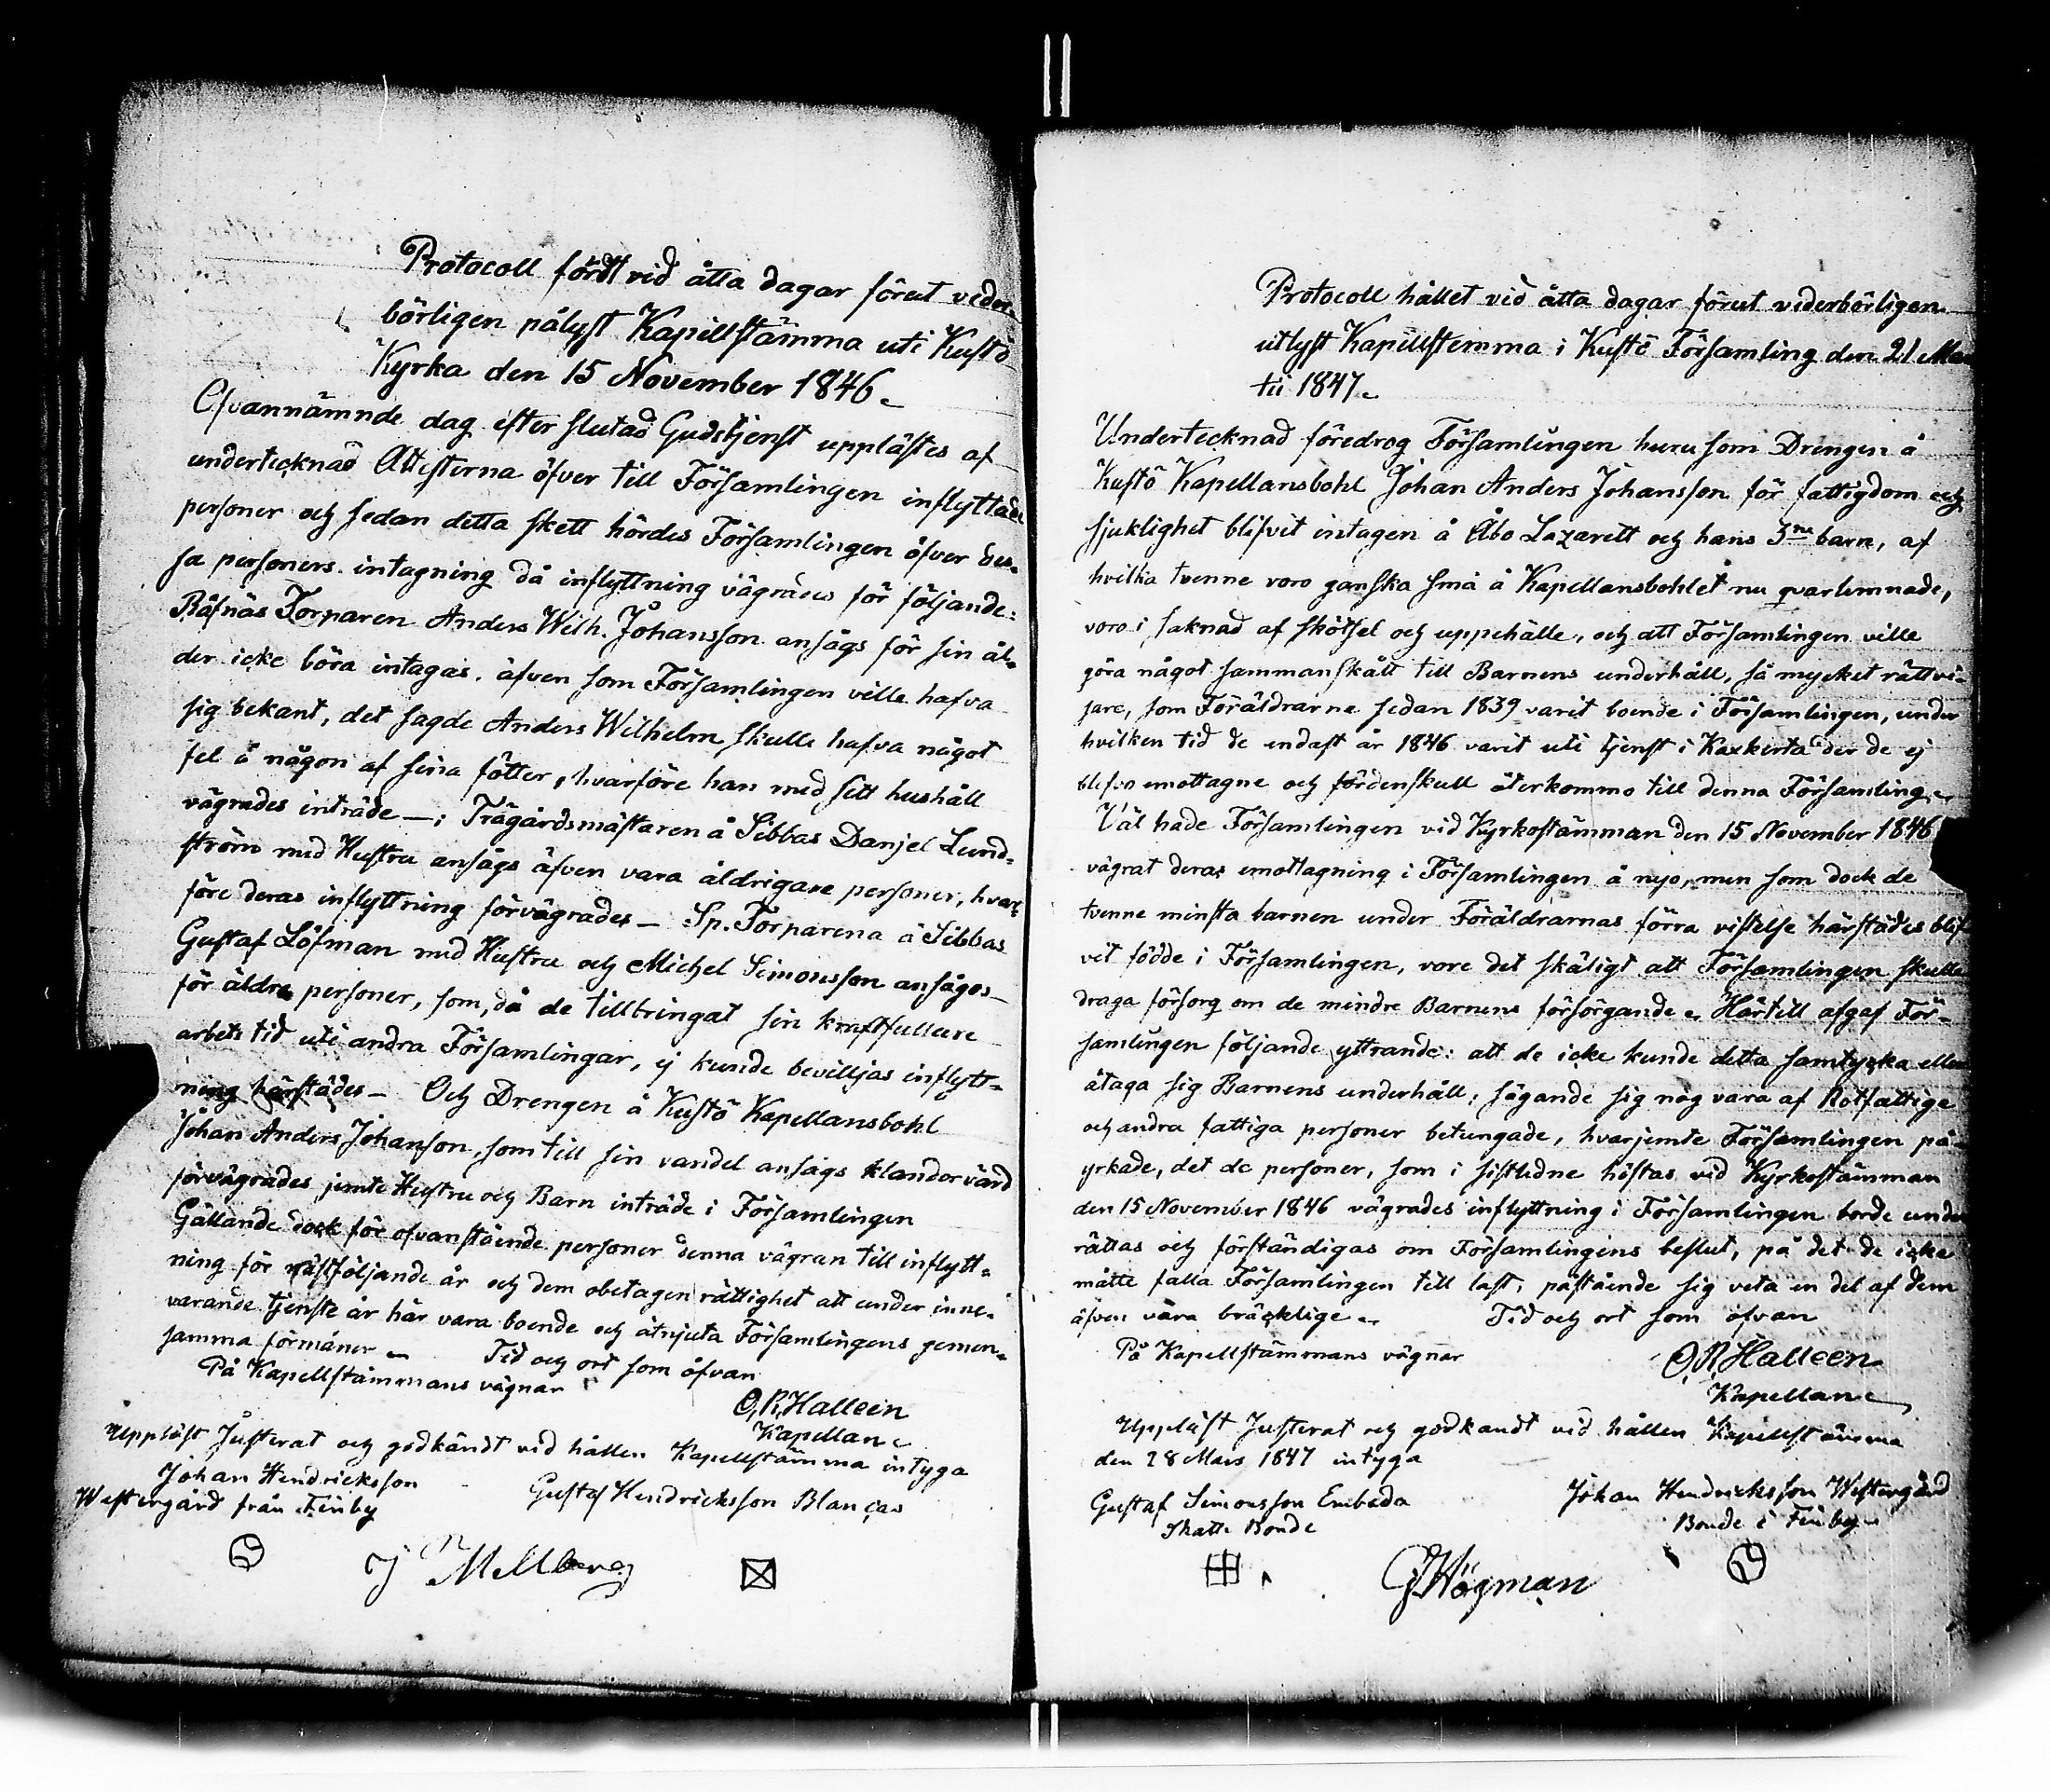 Protocoll fördt vid åtta dagar förut veder-
börligen pålyst Kapellstämma uti Kustö
Kyrka den 15 November 1846.
Ofvannämnde dag efter slutad Gudstjenst upplästes af
undertecknad Attesterna öfver till Församlingen inflyttade
personer och sedan detta skett hördes Församlingen öfver des-
sa personers intagning då inflyttning vägrades för följande:
Räfnäs Torparen Anders Wilh. Johansson ansågs för sin ål-
der icke böra intagas, äfven som Församlingen ville hafva
sig bekant, det sagde Anders Wilhelm skulle hafva något
fel å någon af sina fötter, hvarföre han med sitt hushåll
vägrades inträde —; Trägårdsmästaren å Sibbas Danjel Lund-
ström med Hustru ansågs äfven vara åldrigare personer, hvar-
före deras inflyttning förvägrades — Sp. Torparena å Sibbas
Gustaf Löfman med Hustru och Michel Simonsson ansågos
för äldre personer, som, då de tillbringat sin kraftfullare
arbets tid uti andra Församlingar, ej kunde bevilljas inflytt-
ning härstädes — Och Drengen å Kustö Kapellansbohl
Johan Anders Johanson, som till sin vandel ansågs klandervärd
förvägrades jemte Hustru och Barn inträde i Församlingen
Gällande dock för ofvanstående personer denna vägran till inflytt-
ning för nästföljande år och dem obetagen rättighet att under inne-
varande tjenste år här vara boende och åtnjuta Församlingens gemen-
samma förmåner. Tid och ort som ofvan
På Kapellstämmans vägnar
O. R. Halleen
Kapellan.
Uppläst Justerat och godkändt vid hållen Kapellstämma intyga
Johan Hendricksson Gustaf Hendricksson Blancas
Westergård från Finby
J Mellberg
Protocoll hållet vid åtta dagar förut vederbörligen
utlyst Kapellstemma i Kustö Församling den 21 Mar
tii 1847.
Undertecknad föredrog Församlingen huru som Drengen å
Kustö Kapellansbohl Johan Anders Johansson för fattigdom och
sjuklighet blifvit intagen å Åbo Lazarett och hans 3ne barn, af
hvilka tvenne voro ganska små å Kapellansbohlet nu qvarlemnade,
voro i saknad af skötsel och uppehälle, och att Församlingen ville
göra något sammanskått till Barnens underhåll, så mycket rättvi-
sare, som Föräldrarne sedan 1839 varit boende i Församlingen, under
hvilken tid de endast år 1846 varit uti tjenst i Kaxkerta der de ej
blefvo emottagne och fördenskull återkommo till denna Församling.
Väl hade Församlingen vid Kyrkostämman den 15 November 1846
vägrat deras emottagning i Församlingen å nyo, men som dock de
tvenne minsta barnen under Föräldrarnas förra vistelse härstädes blif
vit födde i Församlingen, vore det skäligt att Församlingen skulle
draga försorg om de mindre Barnens försörgande. Härtill afgaf För-
samlingen följande yttrande: att de icke kunde detta samtycka eller
åtaga sig Barnens underhåll; sägande sig nog vara af Rotfattige
och andra fattiga personer betungade, hvarjemte Församlingen på-
yrkade, det de personer, som i sistledne höstas vid Kyrkostämman
den 15 November 1846 vägrades inflyttning i Församlingen borde under
rättas och förständigas om Församlingens beslut, på det de icke
måtte falla Församlingen till last, påstående sig veta en del af dem
äfven vara bräcklige. Tid och ort som ofvan
På Kapellstämmans vägnar
O. R. Halleen
Kapellan.
Uppläst Justerat och godkandt vid hållen Kapellstämma
den 28 Mars 1847 intyga
Gustaf Simonsson Embeda Johan Hendricksson Westergård
Skatte Bonde Bonde i Finby
G Högman